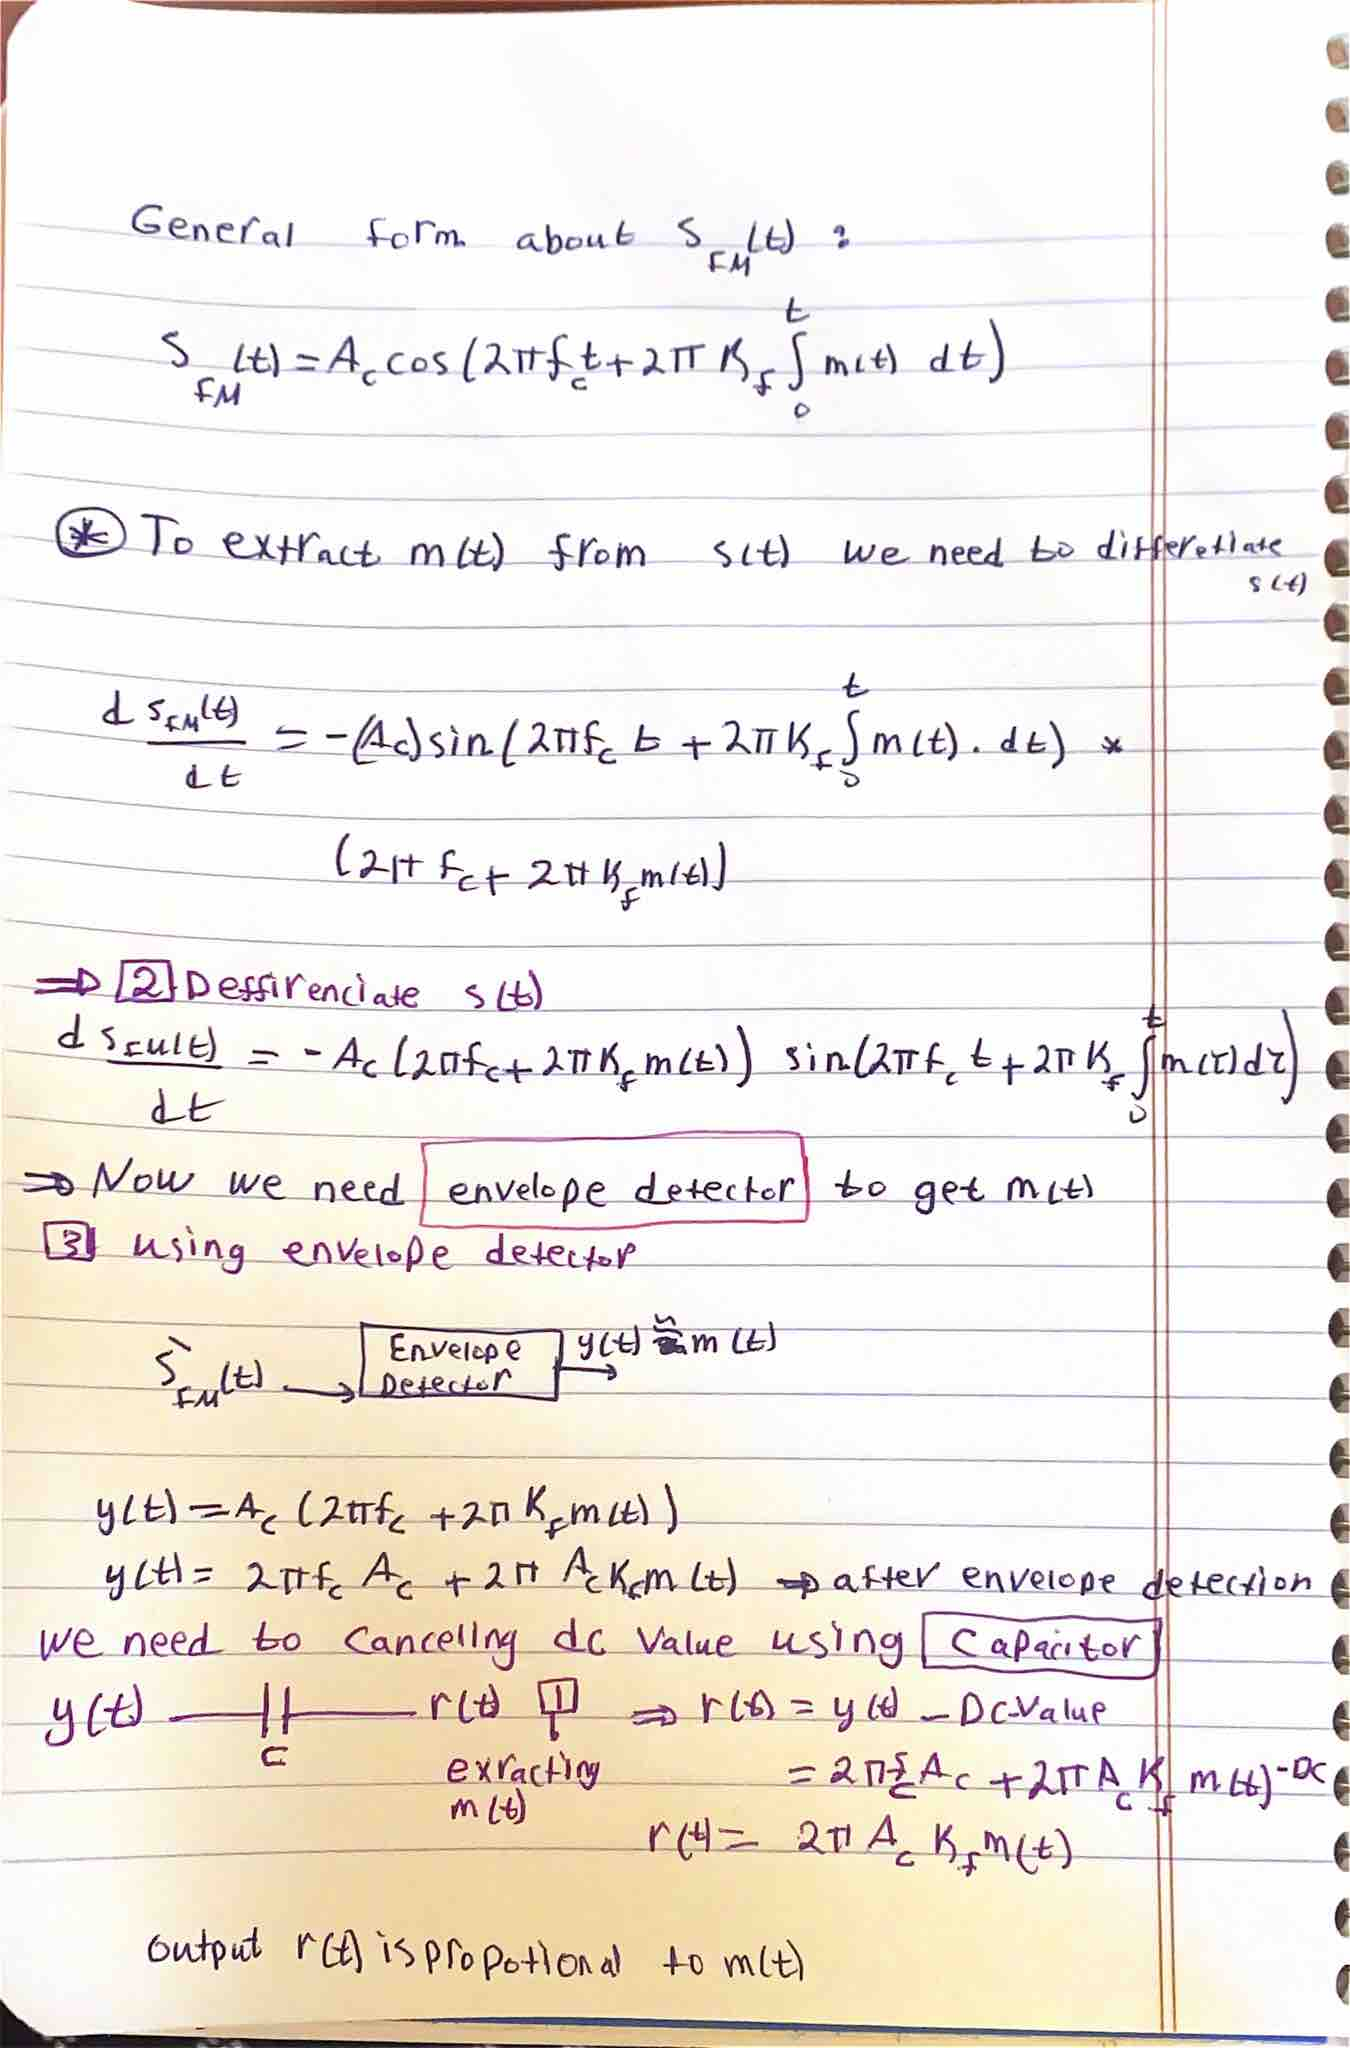 General form about S_FM(t) :
S_FM(t) = A_c cos(2πf_c t + 2π K_f ∫_0^t m(t) dt)
⊛ To extract m(t) from s(t) we need to differetiate
s(t)
d s_FM(t)/dt = -(Ac) sin(2πf_c t + 2π K_f ∫_0^t m(t) . dt) *
(2π f_c + 2π K_f m(t))
⇒ [2] Deffirenciate s(t)
d s_FM(t)/dt = - A_c (2πf_c + 2π K_f m(t)) sin(2πf_c t + 2π K_f ∫_0^t m(τ) dτ)
⇒ Now we need envelope detector to get m(t)
[3] using envelope detector
S`_FM(t) → Envelope Detector → y(t) ≅ m(t)
y(t) = A_c (2πf_c + 2π K_f m(t))
y(t) = 2πf_c A_c + 2π A_c K_f m(t) ⇒ after envelope detection
we need to canceling dc value using capacitor
y(t) —||— r(t) [1] ⇒ r(t) = y(t) - Dc-value
C
exracting = 2πf_c A_c + 2π A_c K_f m(t) - DC
m(t)
r(t) = 2π A_c K_f m(t)
output r(t) is propotional to m(t)